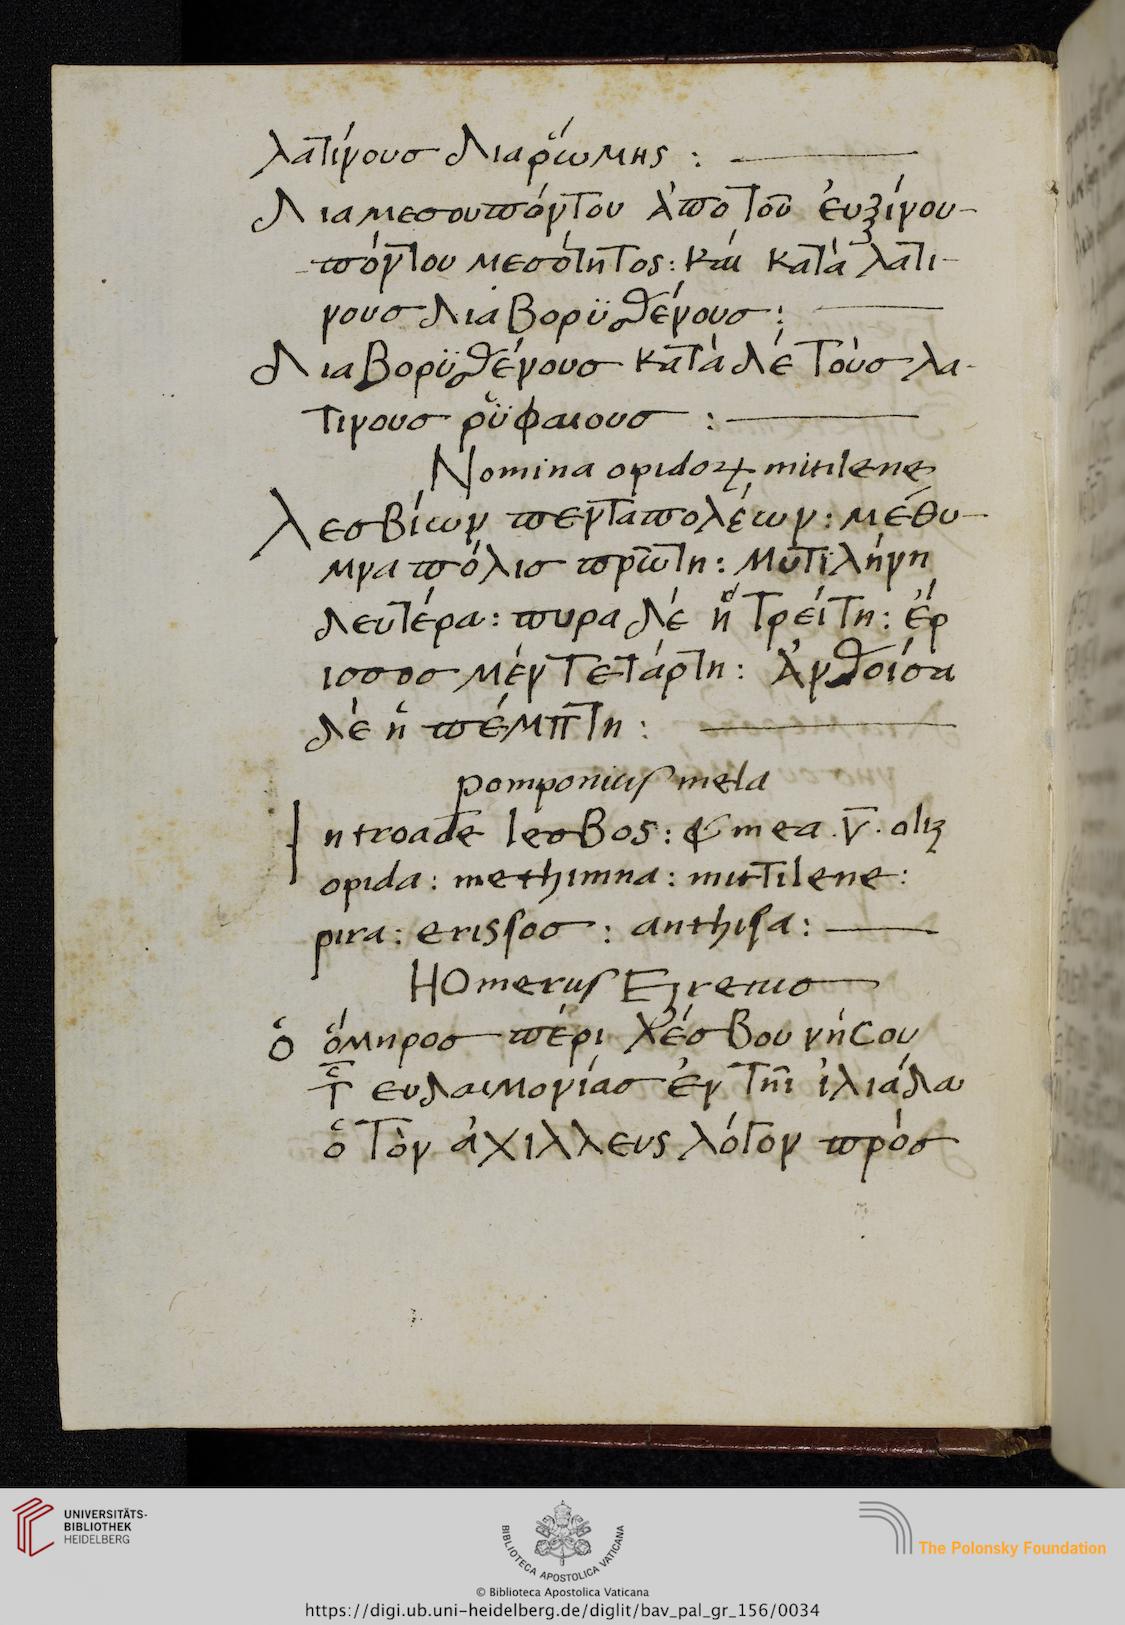 λατίνους διαῥώμης :
Διαμεσουπόντου ἀπο τοῦ ἐυξίνου-
πόντου μεσότητος: κάι κατὰ λατι-
νους διαβορϋσθένους:
Διαβορϋσθένους κατὰ δέ τοὺσ λα-
τινους ῥϋφαιους :
Nomina opidoꝝ mitilene
λεσβίων πενταπολέων: μέθυ-
μνα πόλισ πρῶτη: Μυτϊλήνη
δευτέρα: πυρα δέ ἡ τρείτη: ἐρ
ισσοσ μέν τετάρτη: Ἀνθοίσα
δὲ ἡ πέμπτη:
pomponiuſ mela
In troade lesBos: & in ea . v̅ . oliꝫ
opida: methimna: mittilene:
pira: erisſos : anthiſa:
HOmeruſ
ὁ ὅμηρος πέρι λέσβου νήσου
ευδαιμονίασ ἐν τῆι ἰλιάδα
ὁ τὸν ἀχιλλευς λότον πρόσ
UNIVERSITÄTS-
BIBLIOTHEK
HEIDELBERG
BIBLIOTECA APOSTOLICA VATICANA
The Polonsky Foundation
© Biblioteca Apostolica Vaticana
https://digi.ub.uni-heidelberg.de/diglit/bav_pal_gr_156/0034